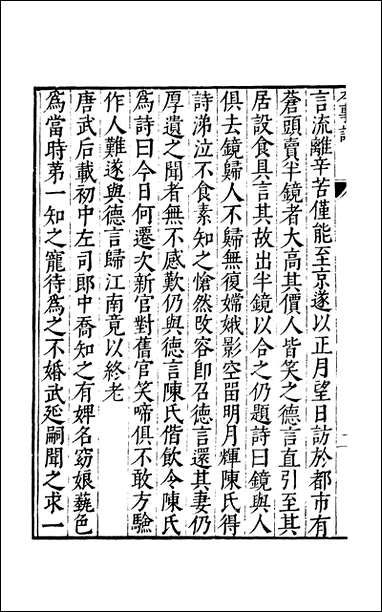 言流離辛苦僅能至京遂以正月望日訪於都市有
蒼頭賣半鏡者大高其價人皆笑之德言直引至其
居設食具言其故出半鏡以合之仍題詩曰鏡與人
俱去鏡歸人不歸無復嫦娥影空留明月輝陳氏得
詩涕泣不食素知之愴然改容即召德言還其妻仍
厚遺之聞者無不感歎仍與德言陳氏偕飲令陳氏
為詩曰今日何遷次新官對舊官笑啼俱不敢方驗
作人難遂與德言歸江南竟以終老
唐武后載初中左司郎中喬知之有婢名窈娘藝色
為當時第一知之寵待為之不婚武延嗣聞之求一